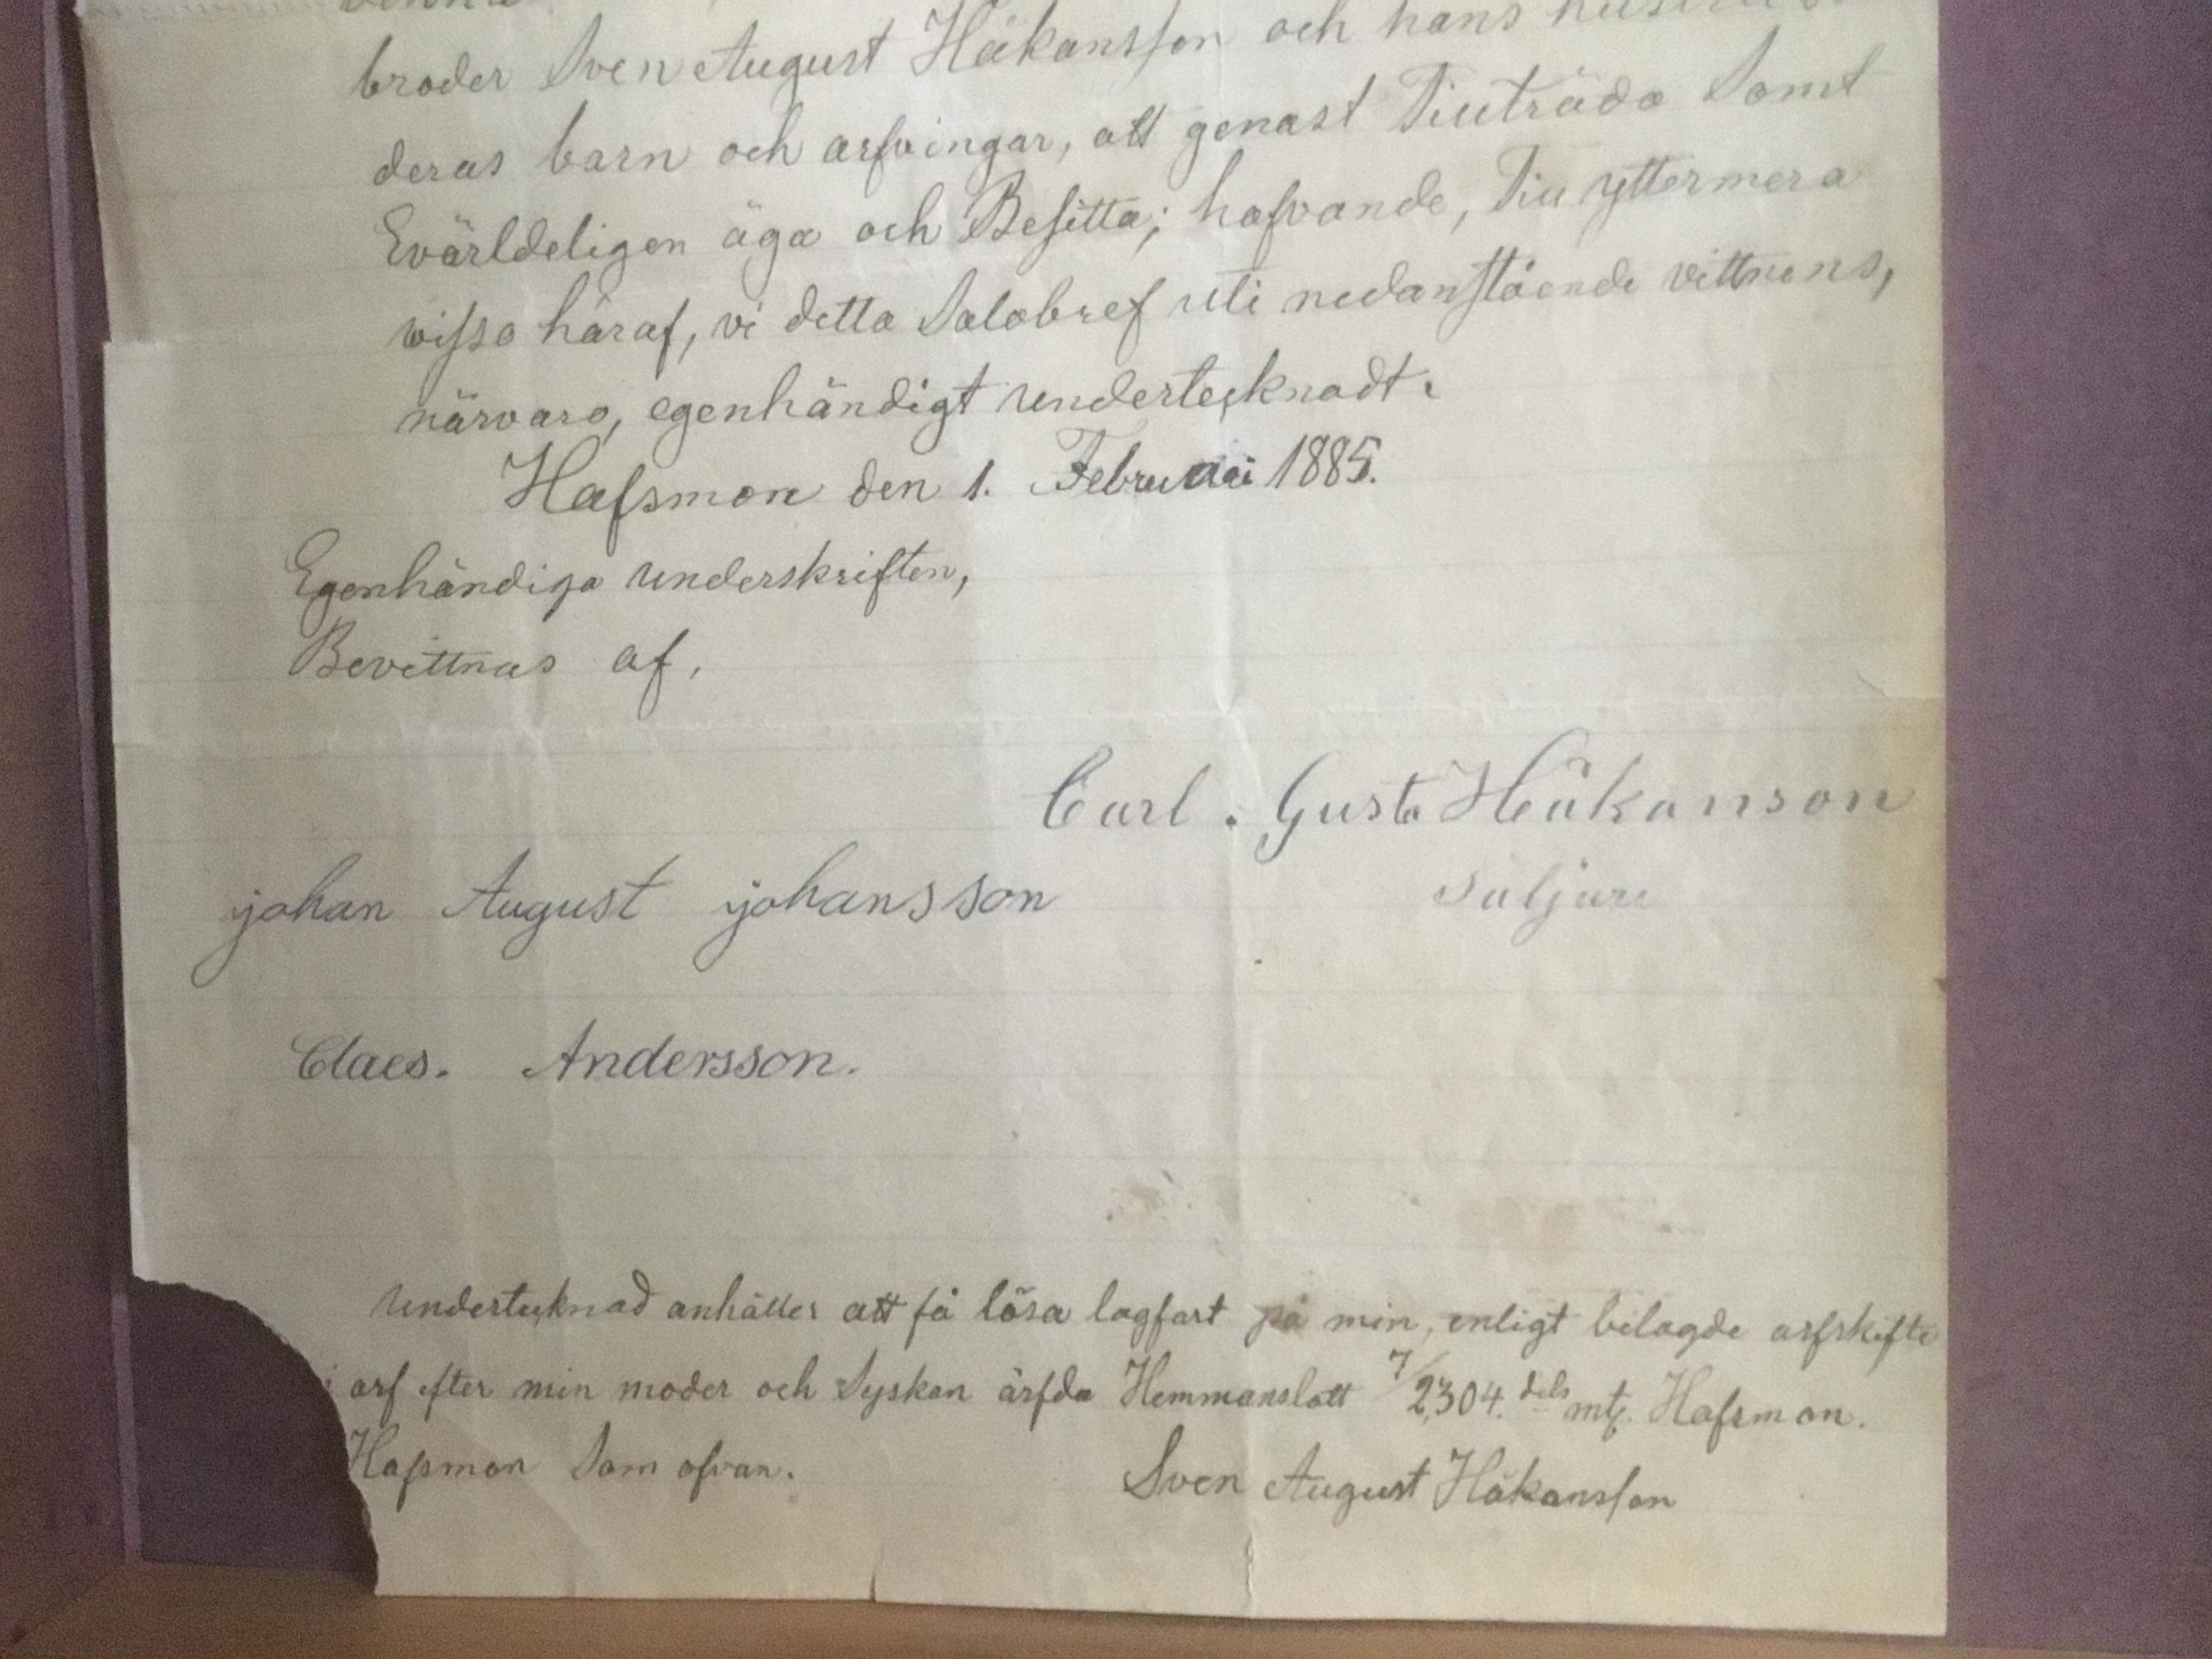 broder Sven August Håkansson och hans
deras barn och arfvingar, att genast Tillträda Samt
Evärldeligen äga och Besitta; hafvande, Till yttermera
wisso häraf, vi detta Salobref uti nedanstående vittnens,
närvaro, egenhändigt undertecknadt.
Hafsmon den 1. Februari 1885.
Egenhändiga underskriften,
Bevittnas af,
Carl. Gusta Håkanson
säljare
johan August johansson
Claes. Andersson.
Undertecknad anhåller att få lösa lagfart på min, enligt bilagde arfskifte
i arf efter min moder och Syskon ärfda Hemmanslott 7/2,304. dels mtl. Hafsmon.
Hafsmon Som ofvan.
Sven August Håkansson